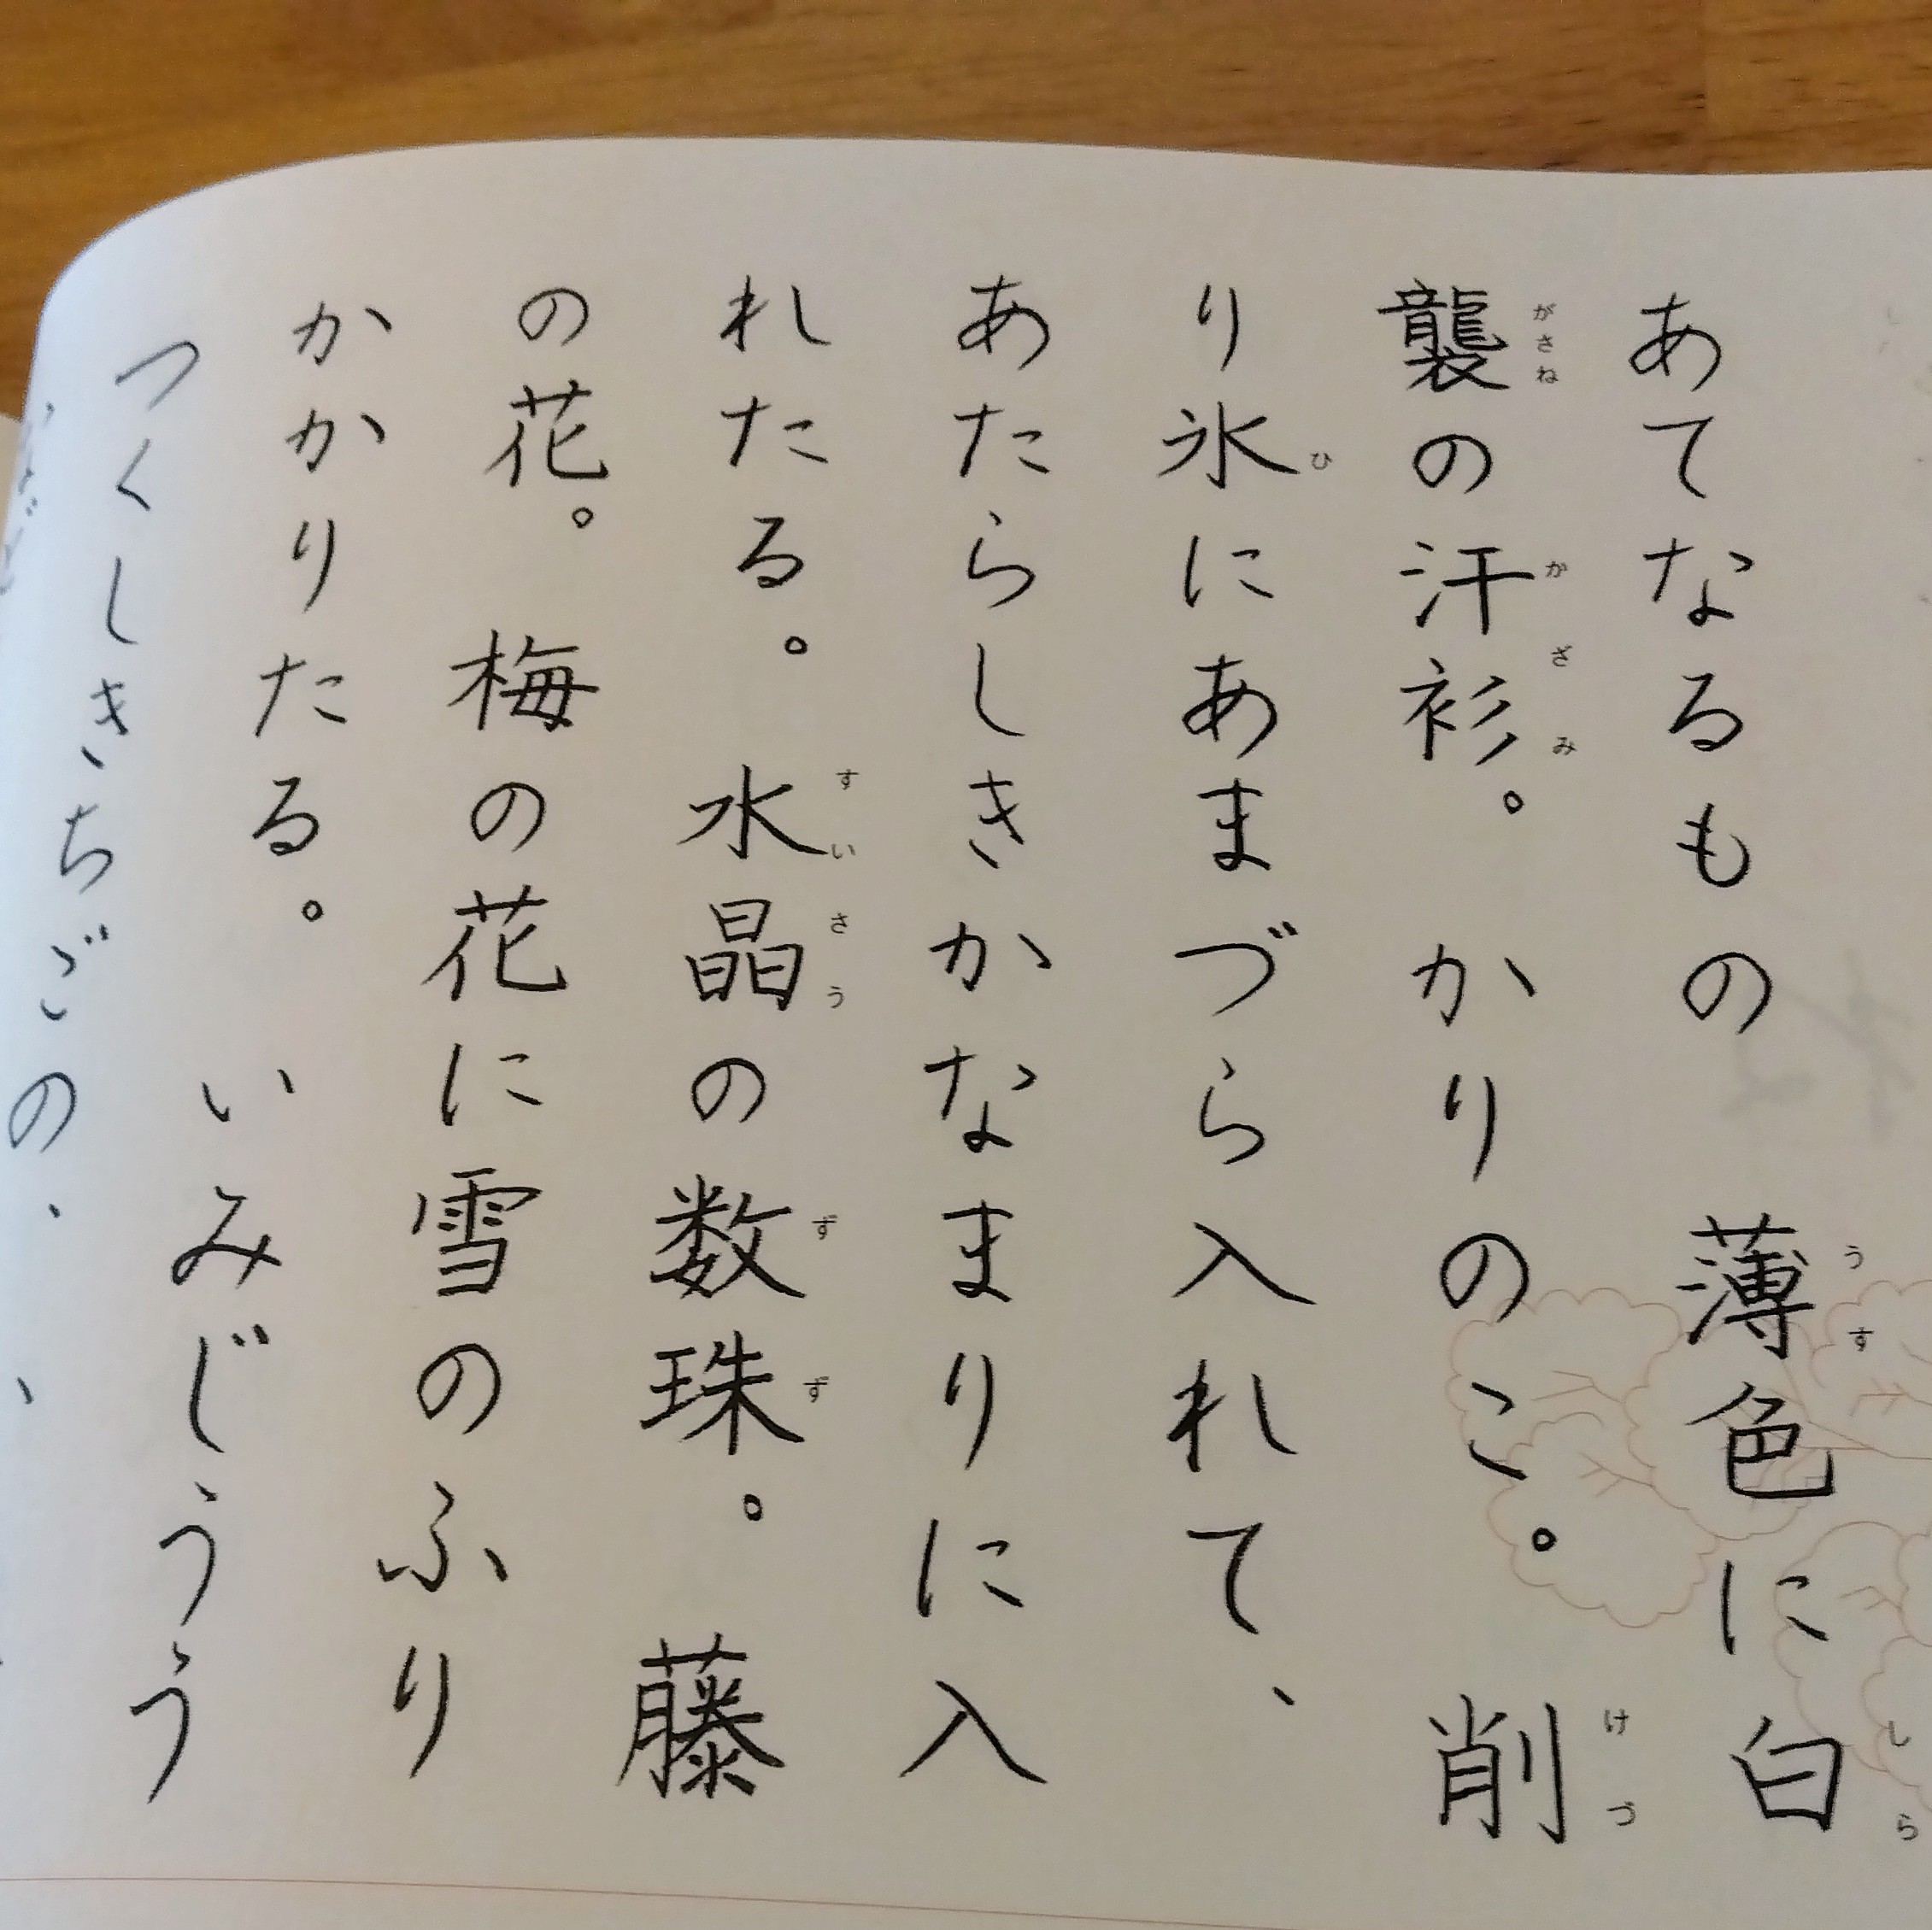 あてなるもの　薄色に白
襲の汗衫。　かりのこ。　削
り氷にあまづら入れて、
あたらしきかなまりに入
れたる。　水晶の数珠。　藤
の花。　梅の花に雪のふり
かかりたる。　いみじうう
つくしきちごの、